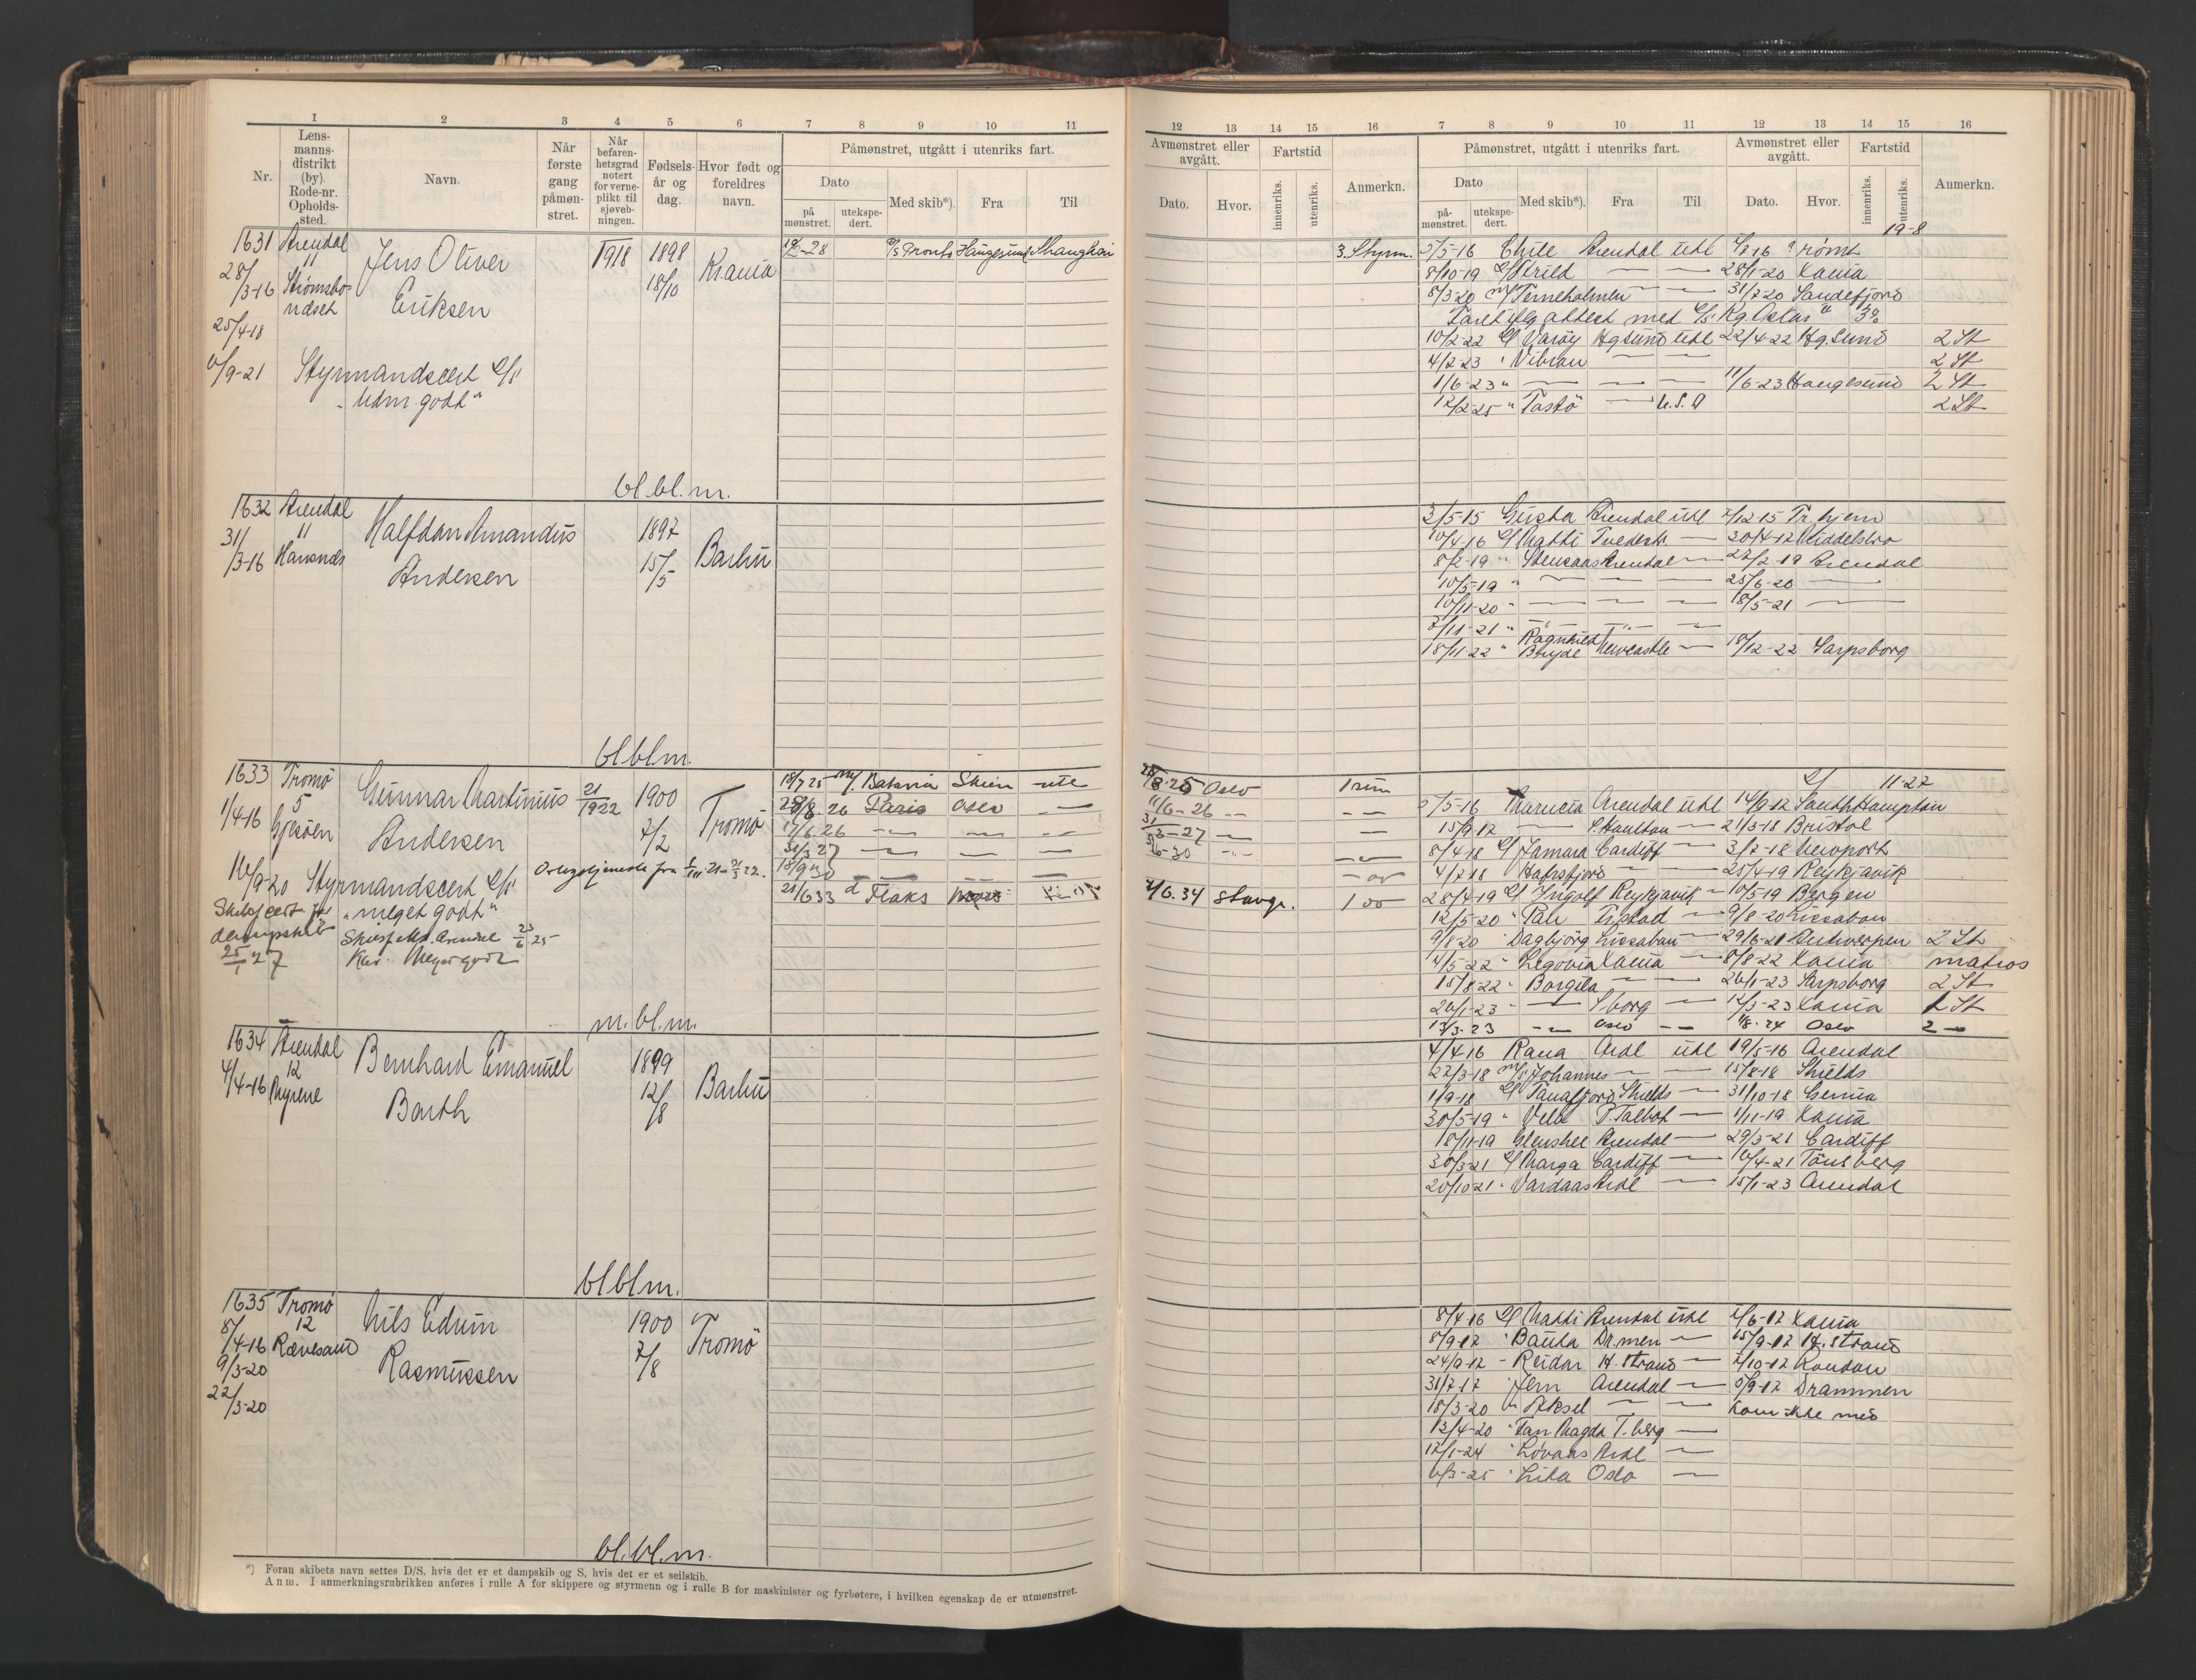 1 2 3 4 5 6 7 8 9 10 11
Nr.
Lens-
manns-
distrikt
(by).
Rode-nr.
Opholds-
sted.
Navn.
Når
første
gang
påmøn-
stret.
Når
befaren-
hetsgrad
notert
for verne-
plikt til
sjøveb-
ningen.
Fødsels-
år og
dag.
Hvor født og
foreldres
navn.
Påmønstret, utgått i utenriks fart.
Dato
på
mønstret.
utekspe-
dert.
Med skib*).
Fra
Til
12 13 14 15 16 7 8 9 10 11 12 13 14 15 16
Avmønstret eller
avgått.
Dato.
Hvor.
Fartstid
innenriks.
utenriks.
Anmerkn.
Påmønstret, utgått i utenriks fart.
Dato
på-
mønstret.
utekspe-
dert.
Med skib*).
Fra
Til
Avmønstret eller
avgått.
Dato.
Hvor.
Fartstid
innenriks.
utenriks.
Anmerkn.
19-8
1631 Arendal
11
28/3-16 Strømsbo-
ndset
25/4-18
Jens Oliver
Eriksen
1918 1898
18/10
Krania
Haugesund Shanghai
3. Styrm.
6/9-21 Styrmandscert D/S
"Udm. godt"
bl.bl.m.
5/5-16 Chile Arendal utl rømt
8/10-19 D/ Arild — — 28/1-20 Xania
8/3-20 m/ Terneholmen — — 31/7-20 Sandefjord
attest med D/S Kg. Oskar
10/2-22 D/ Varøy Hgsund utl 22/4-22 Hg.sund 2 St
4/2-23 " Vibran — — 2 St
1/6-23 " — — — 11/6-23 Haugesund 2 St
12/2-25 " Tastø — U.S.A 2 St
1632 Arendal
11
31/3-16
Halfdan Amandus
Andersen
1897
15/5
Barbu
bl bl m.
3/5-15 Gusta Arendal utl 7/12-15 Tr.hjem
10/4-16 D/ Matti Tvedestr. — 20/4-17 Middelsbro
8/2-19 " Stensaas Arendal — 27/2-19 Arendal
10/5-19 " — — — 25/6-20 —
10/11-20 " — — — 18/5-21 —
8/11-21 " — — —
18/11-22 " Ragnhild Bryde Newcastle — 18/12-22 Sarpsborg
1633 Tromø
5
1/4-16 Gjesøen
Gunnar Martinius
Andersen
21/1922 1900
7/2
Tromø
18/7 25 m/ Batavia Skien — ute
Paris Oslo —
17/6.26 — — —
31/3 27 — — —
18/9 30 — —
21/6 33 d Flaks
Oslo
11/6-26 — — —
31/3-27 — —
7/6.34 Stavgr.
16/9-20 Styrmandscert D/S
"meget godt"
Skibsf cert for
dampskib
25/1 27
Skibsf. eks. Arendal 23/6 25
Kar. Meget godt
m. bl. m.
D/ 11-27
5/5-16 Marucia Arendal utl 14/9-17 SouthHampton
15/9-17 — S.Hamton — 21/3-18 Bristol
8/4-18 D/ Jamara Cardiff — 3/7-18 Newport
4/7-18 Hafrsfjord — — 25/4-19 Reykjavik
28/4-19 D/ Ingolf Reykjavik — 10/5-19 Bergen
12/5-20 " Pan — 9/8-20 Lissabon
9/8-20 " Dagbjørg Lissabon — 29/6-21 Antwerpen 2 St
4/5-22 " Segovia Xania — 8/8-22 Xania matros
15/8-22 " Borgila — — 26/1-23 Sarpsborg 2 St
26/1-23 " — S borg — 12/3-23 Xania 2 St
13/3-23 — Oslo — 11/8-24 Oslo 2 —
1634 Arendal
12
4/4-16 Myrene
Bernhard Emanuel
Barth
1899
12/8
Barbu
bl bl m.
4/4-16 Rana Ardl utl 19/5-16 Arendal
22/3-18 m/S Johannes — — 15/8-18 Shields
1/9-18 D/ Tanafjord Shields — 31/10-18 Genua
30/5-19 " Vela P. Talbot — 1/11-19 Xania
18/11-19 Glenshee Arendal — 29/3-21 Cardiff
30/3-21 D/ Marga Cardiff — 16/4-21 Tønsberg
20/10-21 " Vardaas Ardl — 15/1-23 Arendal
1635 Tromø
12
8/4-16 Rævesand
9/3-20
22/3-20
Nils Edvin
Rasmussen
1900
7/8
Tromø
bl. bl. m.
8/4-16 D/ Matti Arendal utl 2/6-17 Xania
8/9-17 " Bauta Dr.men — 15/9-17 H. Strand
24/9-17 " Reidar H. Strand — 2/10-17 London
31/7-17 " Jern Arendal — 5/9-17 Drammen
18/3-20 " Aksel — — kom ikke med
13/4-20 " Fan Magda T.berg —
12/1-24 " Lovaas Ardl —
6/3-25 " Lita Oslo —
*) Foran skibets navn settes D/S, hvis det er et dampskib og S, hvis det er et seilskib.
Anm. I anmerkningsrubrikken anføres i rulle A for skippere og styrmenn og i rulle B for maskinister og fyrbøtere, i hvilken egenskap de er utmønstret.